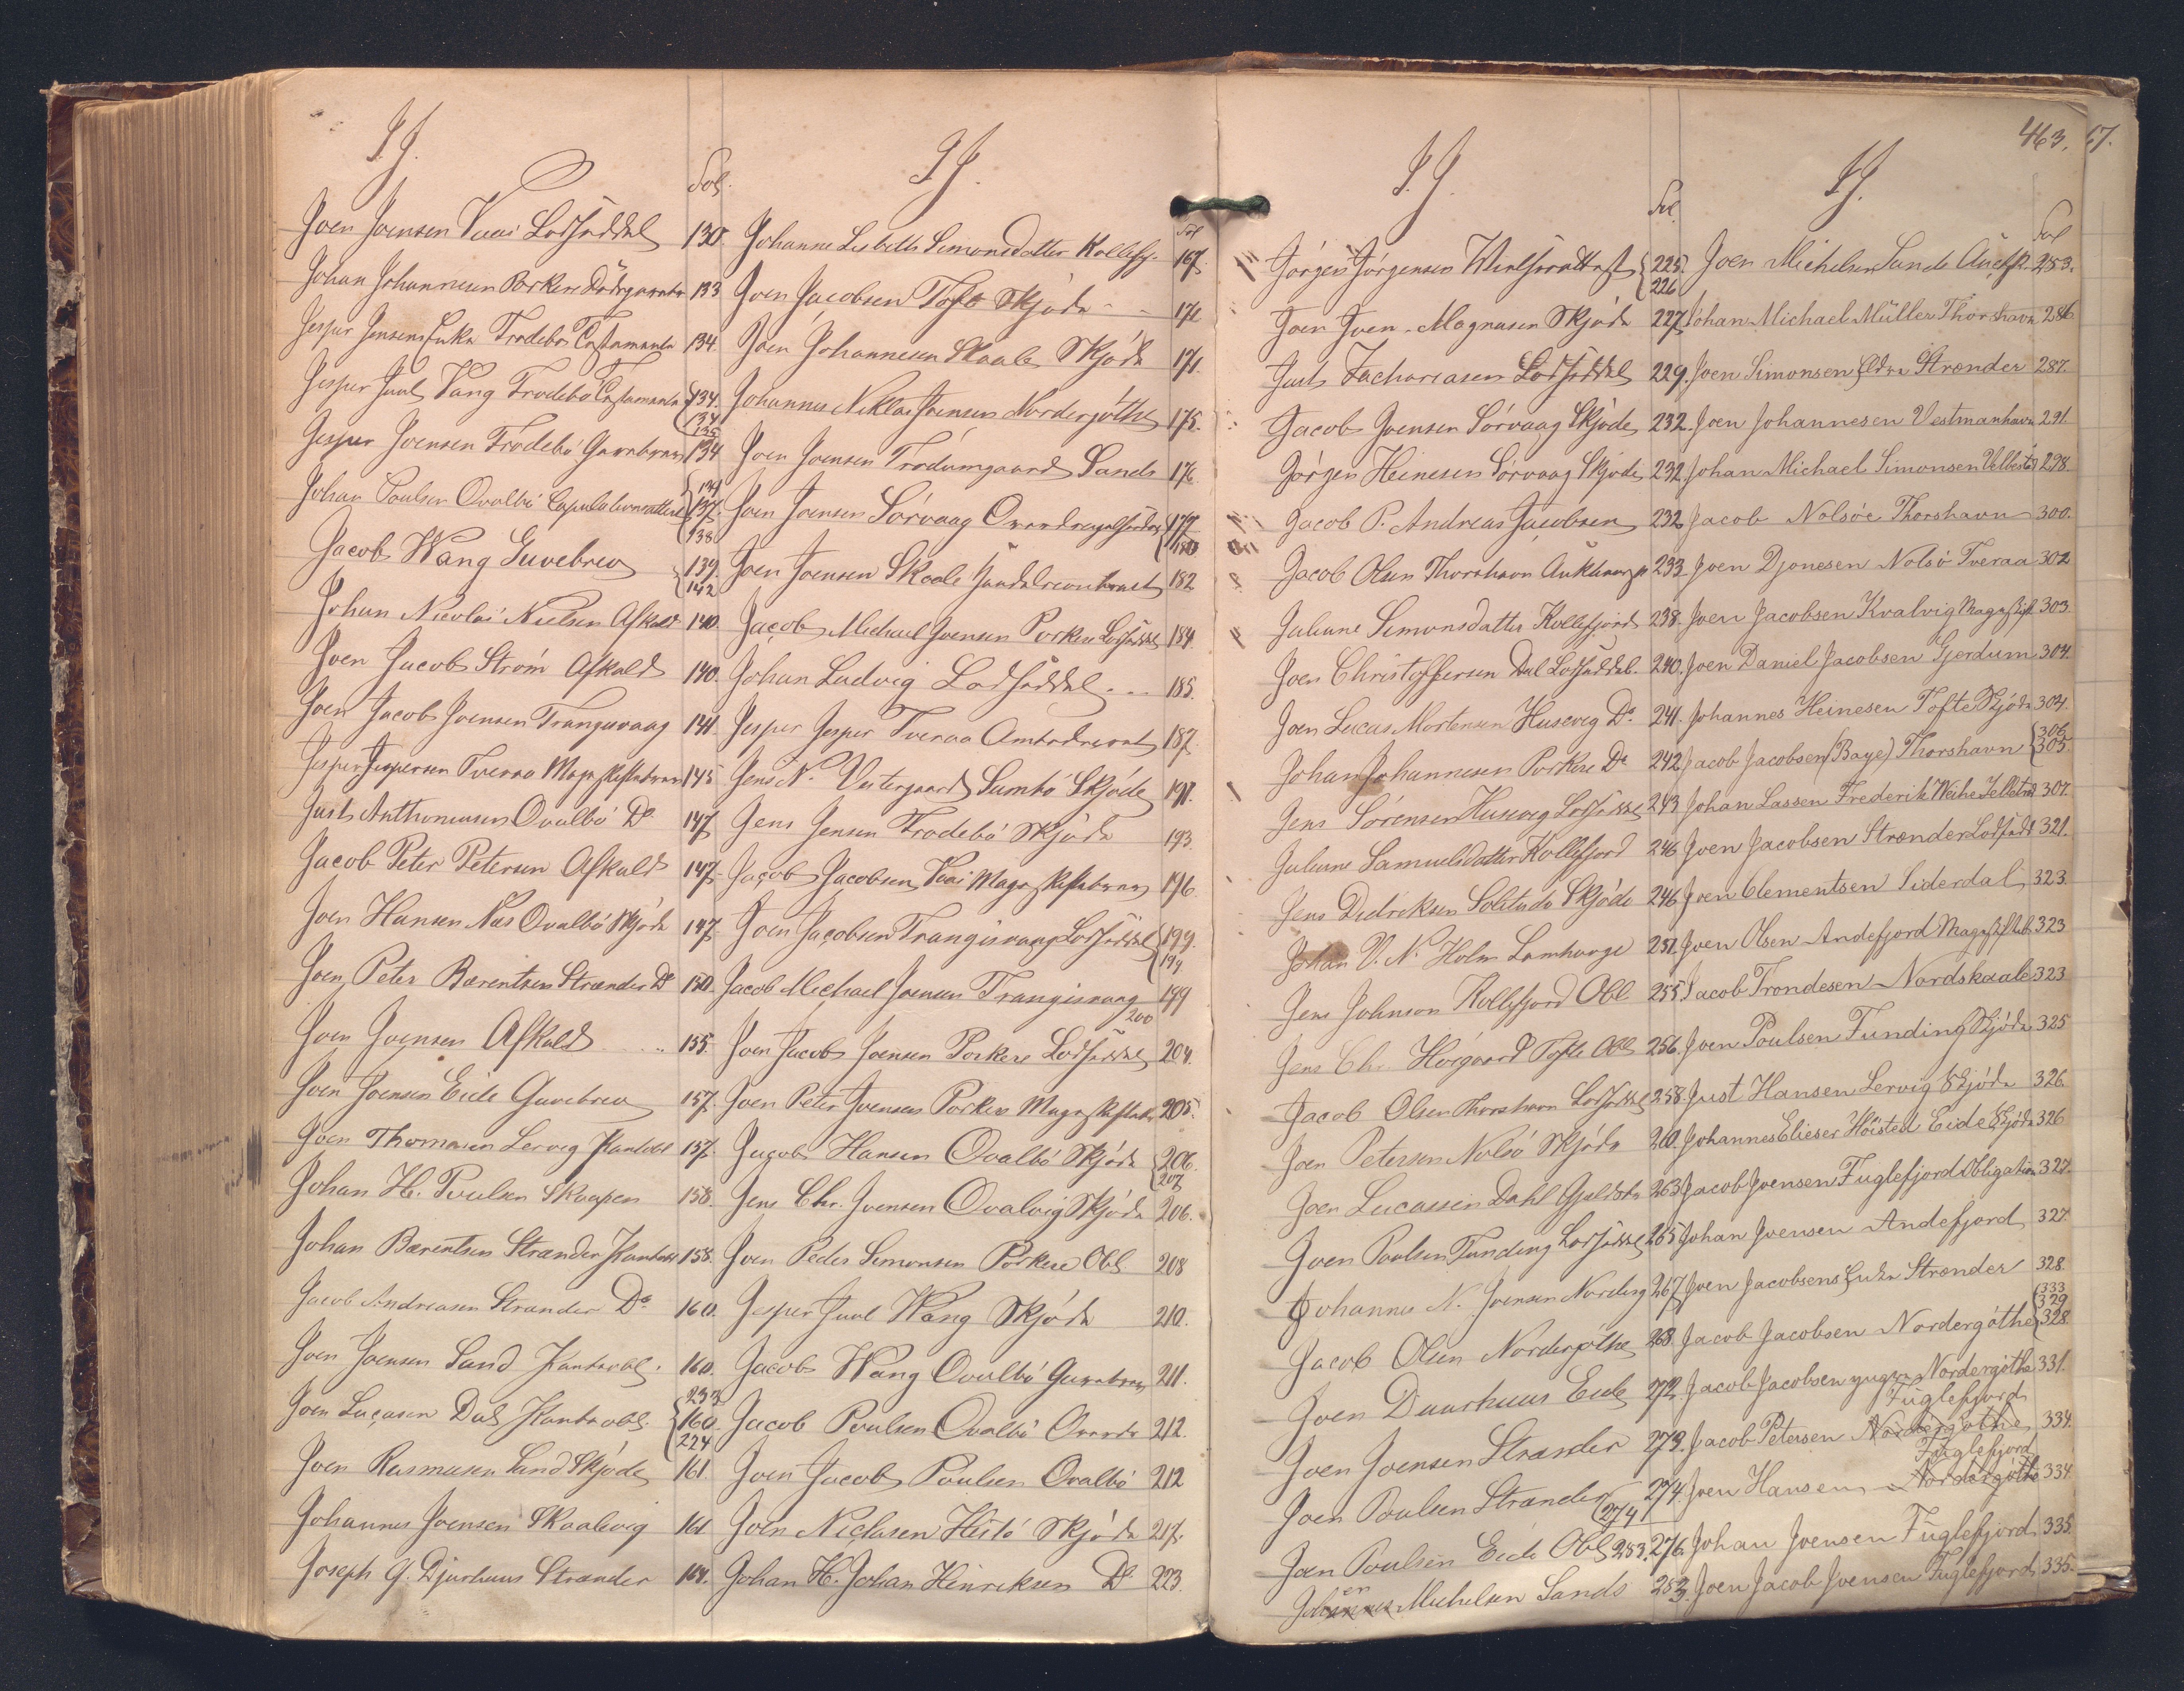 I. J.
Fol.
Joen Joensen Vaai Lodseddel 130
Johan Johannesen Porkere 133
Jesper Jensens Enke Frodebø Testamente 134
Jesper Juul Vang Frodebø Testamente 134. 134 135
Jesper Joensen Frodebø Gavebrev 134
Johan Poulsen Qvalbø 134 137. 138
Jacob Wang Gavebrev 139. 142
Johan Nicolai Nielsen Afkald 140.
Joen Jacob Strøm Afkald 140.
Joen Jacob Joensen Trangisvaag 141
Jesper Jespersen Tveraa 145
Just Anthoniusen Qvalbø Do 147
Jacob Peter Petersen Afkald 147
Joen Hansen Næs Qvalbø Skjøde 147
Joen Peter Barentsen Strænder Do 150.
Joen Joensen Afkald 155.
Joen Joensen Eide Gavebrev 157.
Joen Thomasen Lervig Panteobl 157.
Johan H. Poulsen Skaapen 158.
Johan Barentsen Strænder Panteobl 158.
Jacob Andreasen Strænder Do 160.
Joen Joensen Sand Panteobl. 160.
Joen Lucasen Dal Panteobl. 233 160. 224
Joen Rasmusen Sand Skjøde 161
Johannes Joensen Skaalevig 161
Joseph G. Djurhuus Strænder 164.
I. J.
Fol
Johanne Lisbeth Simonsdatter Kollefj. 167.
Joen Jacobsen Tofte Skjøde 170
Joen Johannesen Skaale Skjøde 171
Johannes Niklas Joensen Nordergøthe 175.
Joen Joensen Trødumgaard Sands 176
Joen Joensen Sørvaag 177 180
Joen Joensen Skaale Handelscontract 182
Jacob Michael Joensen Porkere Lodseddel 184.
Johan Ludvig Lodseddel 185.
Jesper Jesper Tveraa 187.
Jens N. Vestergaard Sumbø Skjøde 191.
Jens Jensen Frodebø Skjøde 193.
Jacob Jacobsen Vaai 196.
Joen Jacobsen Trangisvaag Lodseddel 199. 199
Jacob Michael Joensen Trangisvaag 199 200
Joen Jacob Joensen Porkere Lodseddel 204.
Joen Peter Joensen Porkere 205.
Jacob Hansen Qvalbø Skjøde 206. 207
Jens Chr. Joensen Qvalvig Skjøde 206.
Joen Peder Simonsen Porkere Obl 208
Jesper Juul Wang Skjøde 210.
Jacob Wang Qvalbø Gavebrev 211.
Jacob Poulsen Qvalbø 212.
Joen Jacob Poulsen Qvalbø 212
Joen Niclasen Hestø Skjøde 217.
Johan H. Johan Hinriksen Do 223.
I. J.
Fol.
Jørgen Jørgensen 225. 226
Joen Joen-Magnusen Skjøde 227
Just Zachariasen Lodseddel 229.
Jacob Joensen Sørvaag Skjøde 232.
Jørgen Heinesen Sørvaag Skjøde 232.
Jacob P. Andreas Jacobsen 232
Jacob Olsen Thorshavn 233
Juliane Simonsdatter Kollefjord 238.
Joen Christoffersen Dal Lodseddel. 240.
Joen Lucas Mortensen Husevig Do 241.
Johan Johannesen Porkere Do 242
Jens Sørensen Husevig Lodseddel 243
Juliane Samuelsdatter Kollefjord 246
Jens Didriksen Solitude Skjøde 246
Johan V. N. Holm Lamhauge 251.
Jens Johnson Kollefjord Obl 255
Jens Chr. Høigaard Tofte Obl 256.
Jacob Olsen Thorshavn Lodseddel 258.
Joen Petersen Nolsø Skjøde 260.
Joen Lucassen Dahl 263
Joen Poulsen Funding Lodseddel 265
Johannes N. Joensen Norderg 267
Jacob Olsen Nordergøthe 268.
Joen Duurhuus Eide 272
Joen Joensen Strænder 273.
Joen Poulsen Strænder 274. 274
Joen Poulsen Eide Obl 283. 276.
Johannes en Michelsen Sands 253.
463. 17.
I. J.
Fol
Joen Michelsen Sande 253.
Johan Michael Müller Thorshavn 286
Joen Simonsen Strænder 287.
Joen Johannesen Vestmanhavn 291.
Johan Michael Simonsen Velbestad 298.
Jacob Nolsøe Thorshavn 300.
Joen Djonesen Nolsø Tveraa 302
Joen Jacobsen Kvalvig 303.
Joen Daniel Jacobsen Gjerdum 304.
Johannes Heinesen Tofte Skjøde 304.
Jacob Jacobsen (Baye) Thorshavn 306 305.
Johan Lassen Frederik Weihe Selletræ 307.
Joen Jacobsen Strænder Lodsedd 321.
Joen Clementsen Siderdal 323.
Joen Olsen Andefjord 323
Jacob Trondesen Nordskaale 323
Joen Poulsen Funding Skjøde 325
Just Hansen Lervig Skjøde 326.
Johannes Elieser Høisted Eide Skjøde 326
Jacob Joensen Fuglefjord Obligation 327.
Johan Joensen Andefjord 327.
Joen Jacobsens Enke Strænder 328.
Jacob Jacobsen Nordergøthe 333 329 328
Jacob Jacobsen yngre Nordergøthe 331.
Fuglefjord
Jacob Petersen Nordergøthe 334.
Fuglefjord
Joen Hansen Nordergøthe 334
Johan Joensen Fuglefjord 335.
Joen Jacob Joensen Fuglefjord 335.